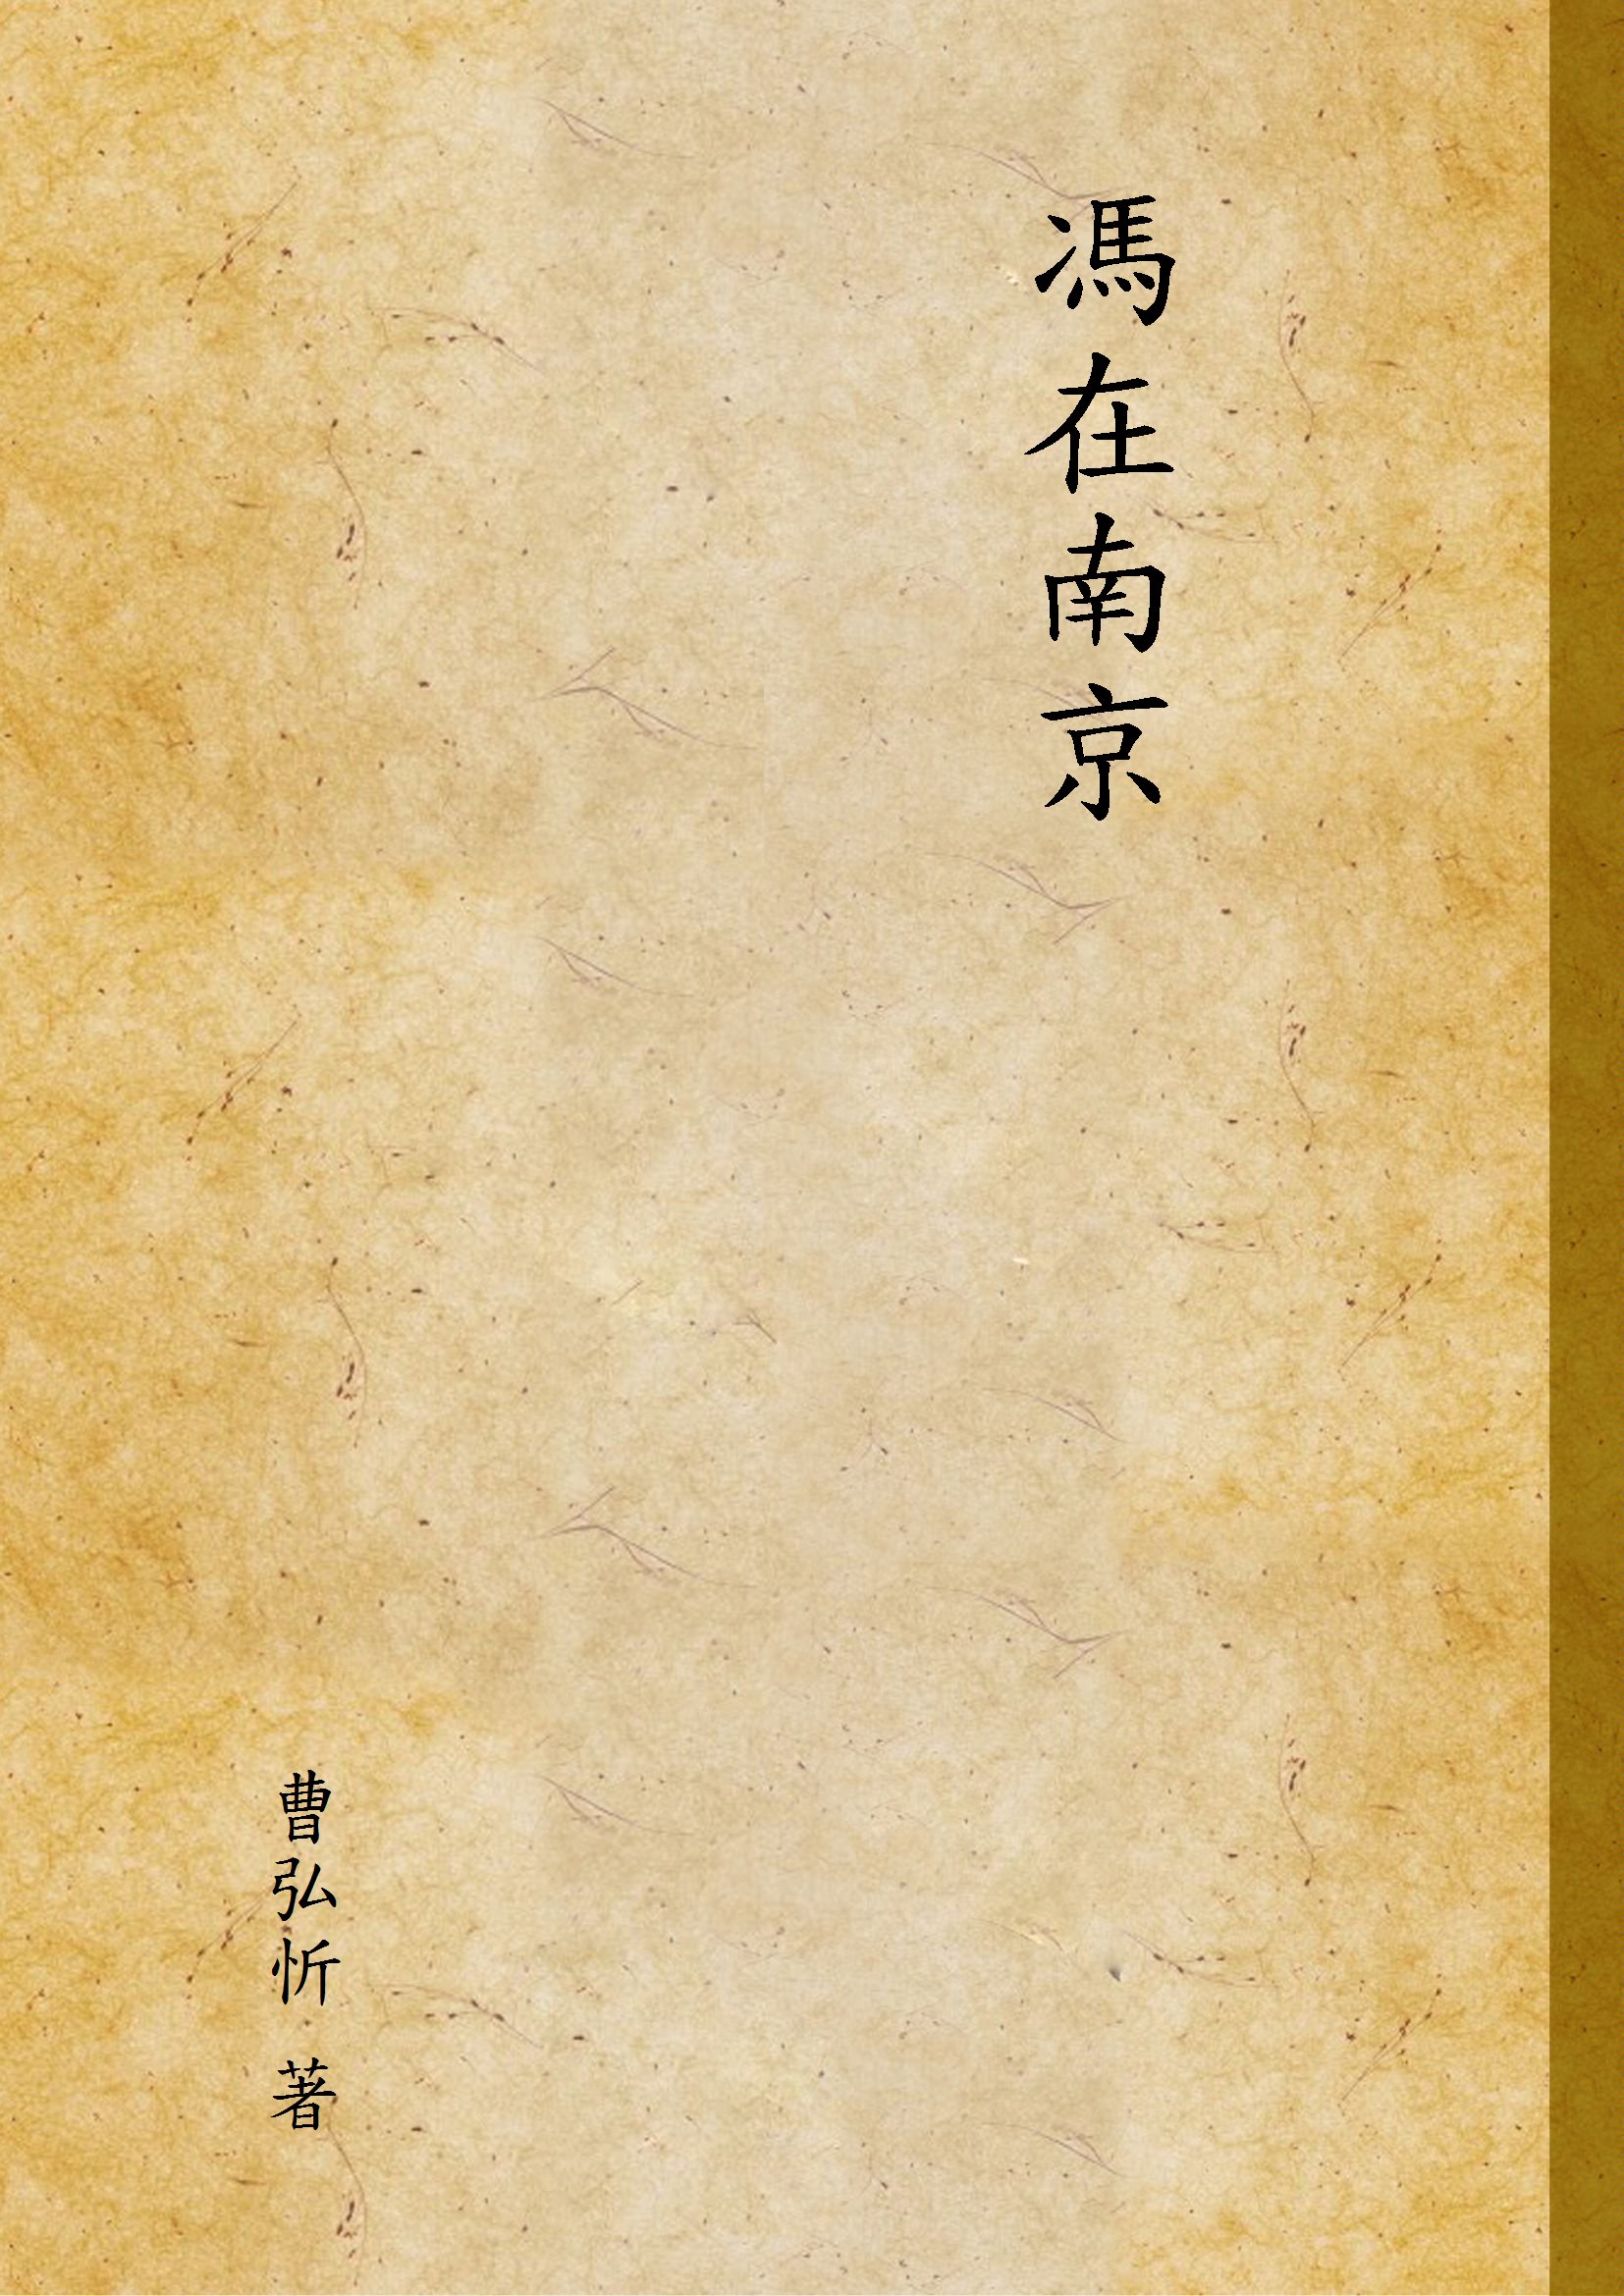 馮在南京
曹弘忻 著